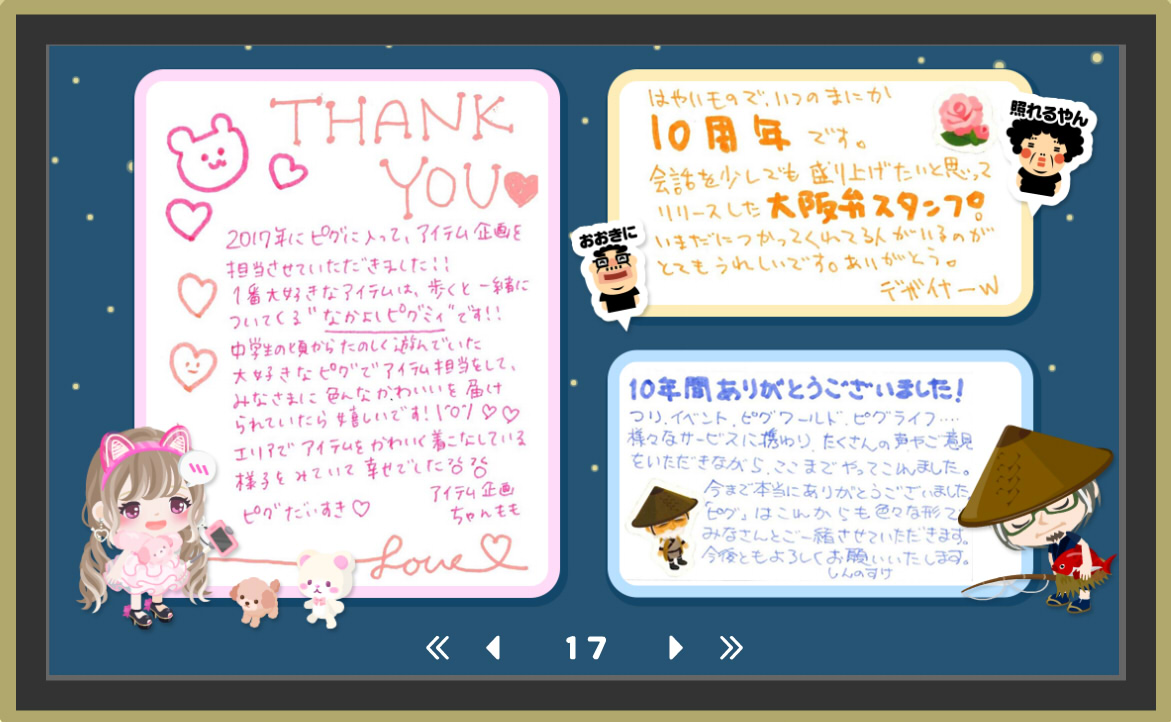 THANK
YOU
2017年にピグに入って、アイテム企画を
担当させていただきました!!
1番大好きなアイテムは、歩くと一緒に
ついてくる"なかよしピグミィ"です!!
中学生の頃からたのしく遊んでいた
大好きなピグでアイテム担当をして、
みなさまに色んなかわいいを届け
られていたら嬉しいです!
エリアでアイテムをかわいく着こなしている
様子をみていて幸せでした
アイテム企画
ちゃんもも
ピグだいすき♡
Love
はやいもので、いつのまにか
10周年です。
会話を少しでも盛り上げたいと思って
リリースした大阪弁スタンプ。
いまだにつかってくれてる人がいるのが
とてもうれしいです。ありがとう。
デザイナーW
照れるやん
おおきに
10年間ありがとうございました!
つり、イベント、ピグワールド、ピグライフ....
様々なサービスに携わり、たくさんの声やご意見
をいただきながら、ここまでやってこれました。
今まで本当にありがとうございました。
「ピグ」はこれからも色々な形で
みなさんとご一緒させていただきます。
今後ともよろしくお願いいたします。
しんのすけ
17